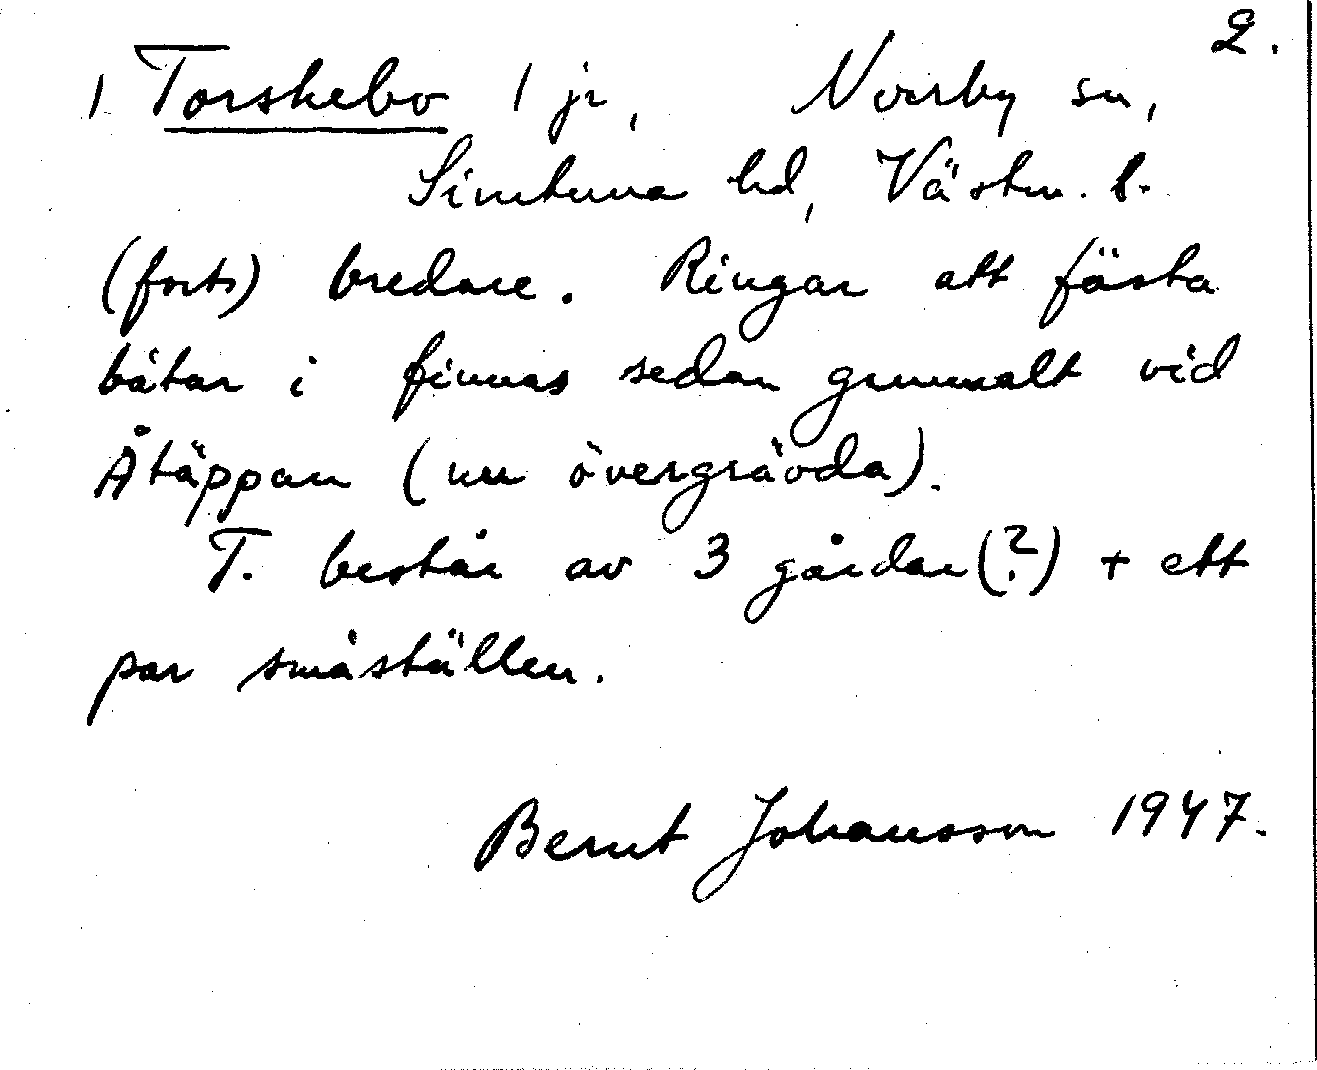 2.
1 Torskebo 1 jr, Norrby sn,
Simtuna hd, Västm. l.
(forts) bredare. Ringar att fästa
båtar i finnas sedan gammalt vid
Åtäppan (nu övergrävda).
T. består av 3 gårdar(?) + ett
par småställen.
Bernt Johansson 1947.